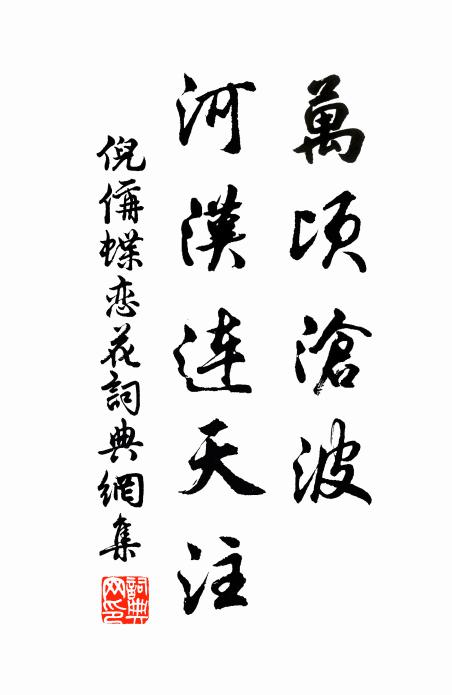 萬頃滄波
河漢連天注
倪偁蝶恋花詞典網集
詞典網印